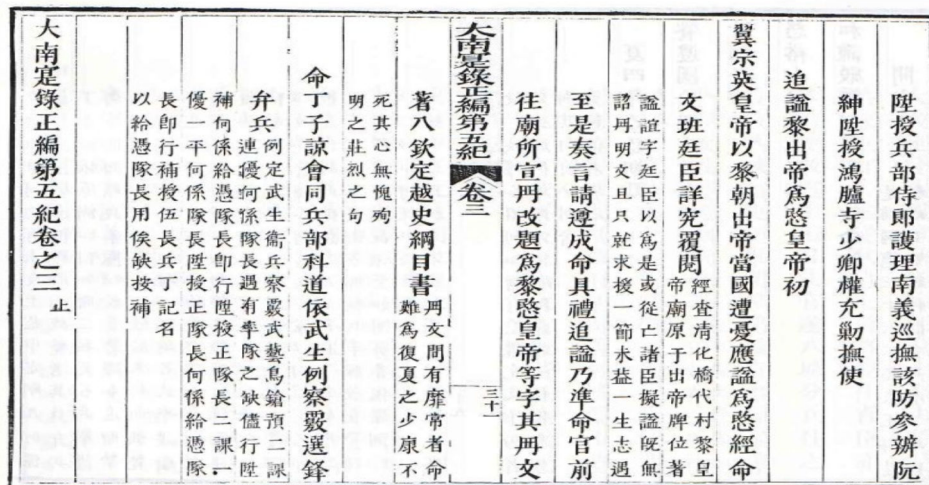 陞授兵部侍郎護理南義巡撫該防參辦阮
紳陞授鴻臚寺少卿權充勦撫使
追謚黎出帝爲愍皇帝初
翼宗英皇帝以黎朝出帝當國遭憂應謚爲愍經命
文班廷臣詳究覆閱
經查清化橋代村黎皇
帝廟原于出帝牌位著
謚誼字廷臣以爲是或從亡諸臣擬謚旣無
詔冊明文且只就求援一節末益一生志遇
至是奏言請遵成命具禮追謚乃準命官前
往廟所宣冊改題爲黎愍皇帝等字其冊文
大南寔錄正編第五紀
卷三
三十一
著入欽定越史綱目書
冊文間有靡常者命
難爲復夏之少康不
死其心無愧殉
明之莊烈之句
命丁子諒會同兵部科道依武生例察覈選鋒
弁兵
例定武生衞兵察覈武藝鳥鎗預一課
連優何係隊長遇有率隊之缺儘行陞
補何係給憑隊長卽行陞授正隊長二課
優一平何係隊長陞授正隊長何係給憑隊
長卽行補授伍長兵丁記名
以給憑隊長用俟缺按補
大南寔錄正編第五紀卷之三
止